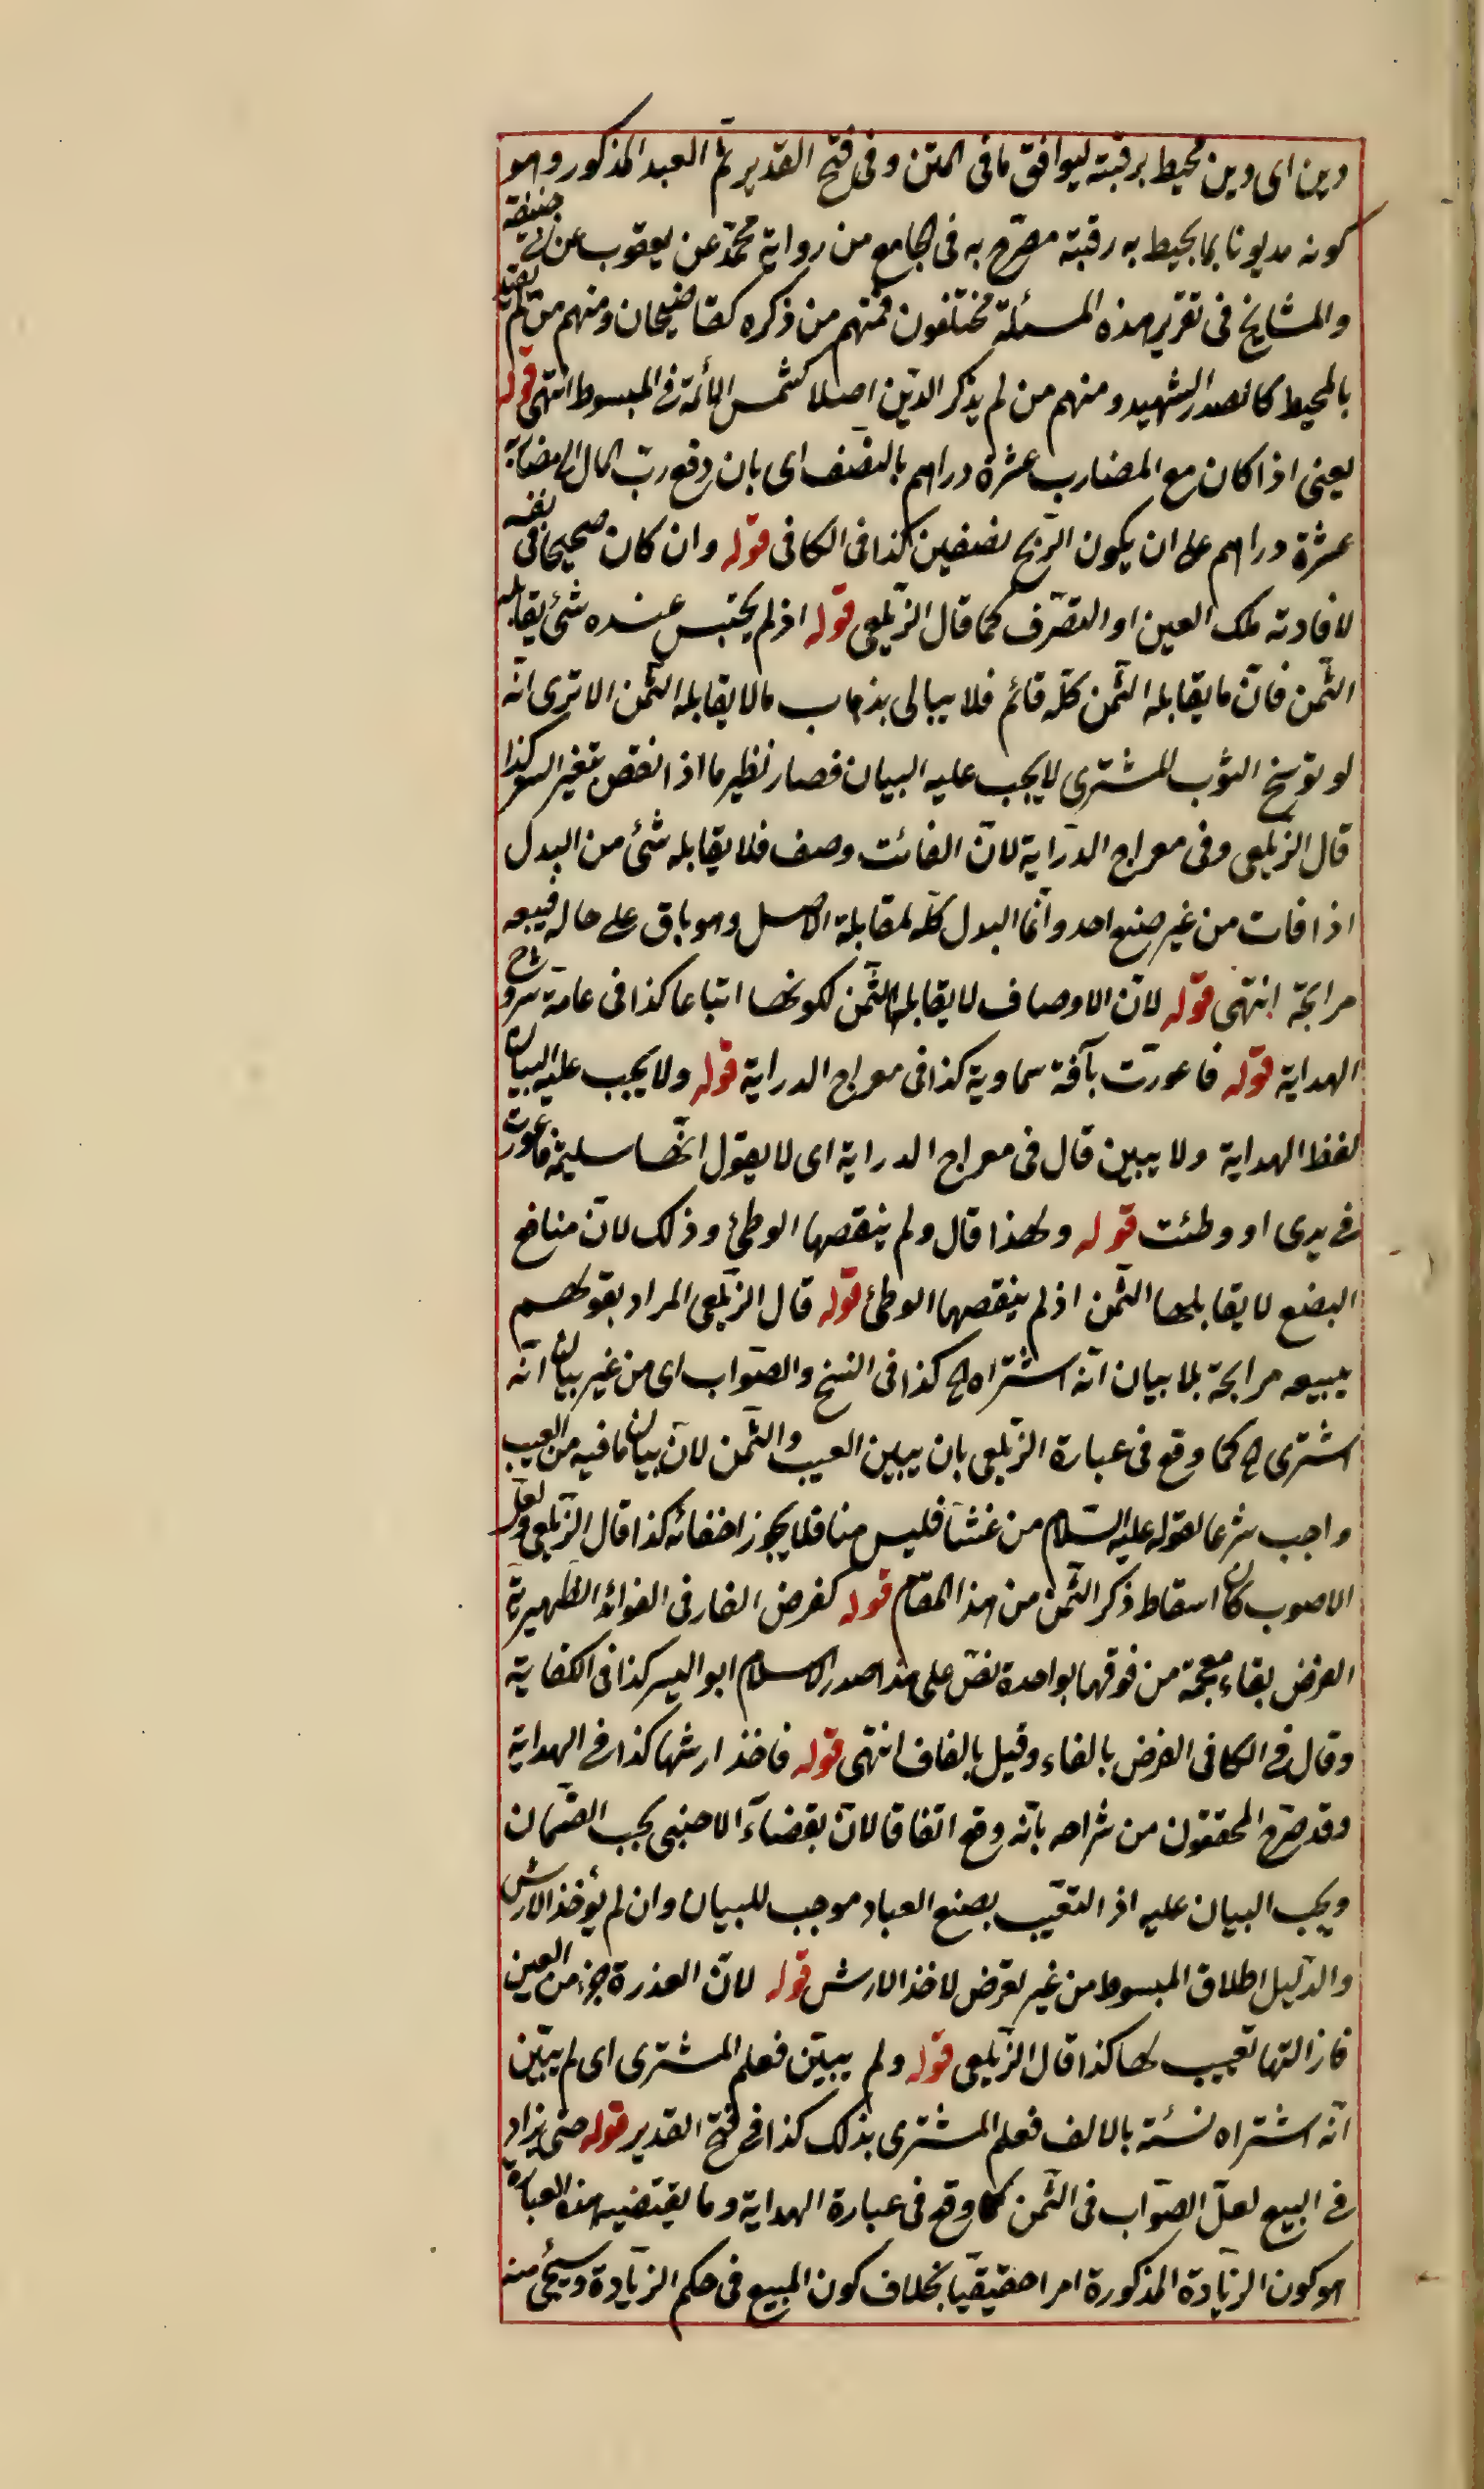 دين اى دين محيط برقبته ليوافق ما فى المتن وفى فتح القدير ثم العبد المذكور وهو
كونه مديونا بما يحيط به رقبته مصرّح به فى الجامع من رواية محمّد عن يعقوب عن ابى حنيفة
والمشايخ فى تقرير هذه المسئلة مختلفون فمنهم من ذكره كقاضيخان ومنهم من لم يقيد
بالمحيط كالصدر الشهيد ومنهم من لم يذكر الدّين اصلا كشمس الائمة فى المبسوط انتهى قوله
يعنى اذا كان مع المضارب عشرة دراهم بالنصف اى بان دفع ربّ المال الى مضاربه
عشرة دراهم على ان يكون الرّبح نصفين كذا فى الكافى قوله وان كان صحيحا فى نفسه
لافادته ملك العين او التصرّف كما قال الزّيلعى قوله اذ لم يحتبس عنده شئ يقابله
الثّمن فانّ ما يقابله الثّمن كلّه قائم فلا يبالى بذهاب ما لا يقابله الثّمن الا ترى انّه
لو توسّخ الثوب للمشترى لا يجب عليه البيان فصار نظير ما اذا انتقص بتغير السعر كذا
قال الزّيلعى وفى معراج الدّراية لانّ الفائت وصف فلا يقابله شئ من البدل
اذا فات من غير صنع احد وانّما البدل كلّه لمقابلة الاصل وهو باق على حاله فيبيعه
مرابحة انتهى قوله لانّ الاوصاف لا يقابلها الثّمن لكونها اتباعا كذا فى عامّة شروح
الهداية قوله فاعورّت بآفة سماوية كذا فى معراج الدراية قوله ولا يجب عليه البيان
لفظ الهداية ولا يبين قال فى معراج الدراية اى لا يقول انّها سليمة فاعورت
فى يدى او وطئت قوله ولهذا قال ولم ينقصها الوطئ وذلك لانّ منافع
البضع لا يقابلها الثّمن اذ لم ينقصها الوطئ قوله قال الزّيلعى المراد بقولهم
يبيعه مرابحة بلا بيان انّه اشتراه الخ كذا فى النسخ والصّواب اى من غير بيان انّه
اشترى الخ كما وقع فى عبارة الزّيلعى بان يبين العيب والثّمن لانّ بيان ما فيه من العيب
واجب شرعا لقوله عليه السّلام من غشّنا فليس منا فلا يجوز اخفائه كذا قال الزّيلعى ولعل
الاصوب كان اسقاط ذكر الثّمن من هذا المقام قوله كفرض الفار فى الفوائد الظّهيريّة
الفرض بفاء معجمة من فوقها بواحدة نصّ على هذا صدر الاسلام ابو اليسر كذا فى الكفاية
وقال فى الكافى الفرض بالفاء وقيل بالقاف انتهى قوله فاخذ ارشها كذا فى الهداية
وقد صرّح المحققون من شراحه بانّه وقع اتفاقا لانّ بفضّاء الاجنبى يجب الضّمان
ويجب البيان عليه اذ التّعيّب بصنع العباد موجب للبيان وان لم يؤخذ الارش
والدّليل اطلاق المبسوط من غير تعرّض لاخذ الارش قوله لانّ العذرة جزء من العين
فازالتها تعييب لها كذا قال الزّيلعى قوله ولم يبيّن فعلم المشترى اى لم يبيّن
انّه اشتراه نسئة بالالف فعلم المشترى بذلك كذا فى فتح القدير قوله حتى يزاد
فى البيع لعلّ الصّواب فى الثّمن كما وقع فى عبارة الهداية وما يقتضيه هذه العبارة
هو كون الزّيادة المذكورة امرا حقيقيّا بخلاف كون المبيع فى حكم الزّيادة وسيجئ منه